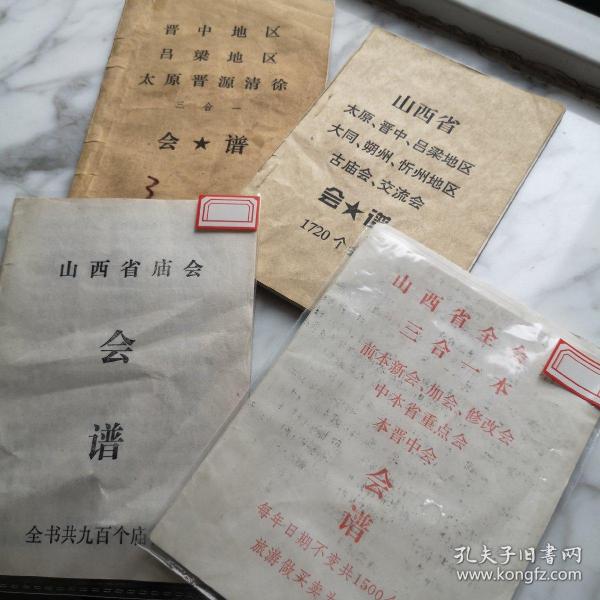 晋中地区
吕梁地区
太原晋源清徐
三合一
会★谱
3
山西省
太原、晋中、吕梁地区
大同、朔州、忻州地区
古庙会、交流会
会★谱
1720个
山西省庙会
会
谱
全书共九百个庙
山西省全
三合一本
前本新会、加会、修改会
中本省重点会
本晋中会
会
谱
每年日期不变共1500
旅游做买卖
孔夫子旧书网
www.kongfz.com